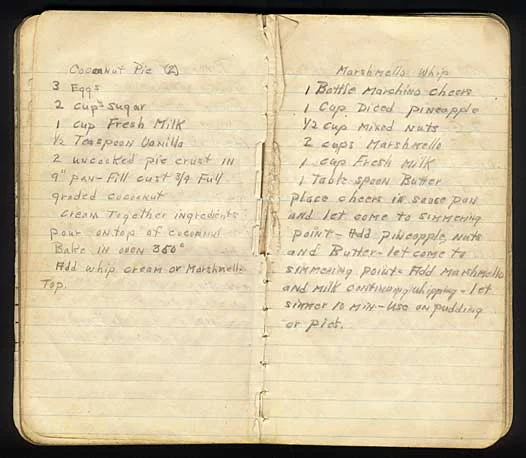 Cocoanut Pie (2)
3 Eggs
2 cups sugar
1 cup Fresh Milk
1/2 Teaspoon Vanilla
2 uncooked pie crust in
9" pan - Fill cust 3/4 Full
graded cocoanut
Cream Together ingredients
pour on top of cocoanut
Bake in oven 350°
Add whip cream or Marshmello
Top.
Marshmello Whip
1 Bottle Marchino cheers
1 Cup Diced pineapple
1/2 cup Mixed Nuts
2 cups Marshmello
1 cup Fresh Milk
1 Table spoon Butter
place cheers in sause pan
and let come to simmering
point - Add pineapple, Nuts
and Butter - let come to
simmering point - Add Marshmello
and Milk continuing whipping - let
simmer 10 min - Use on pudding
or pies.